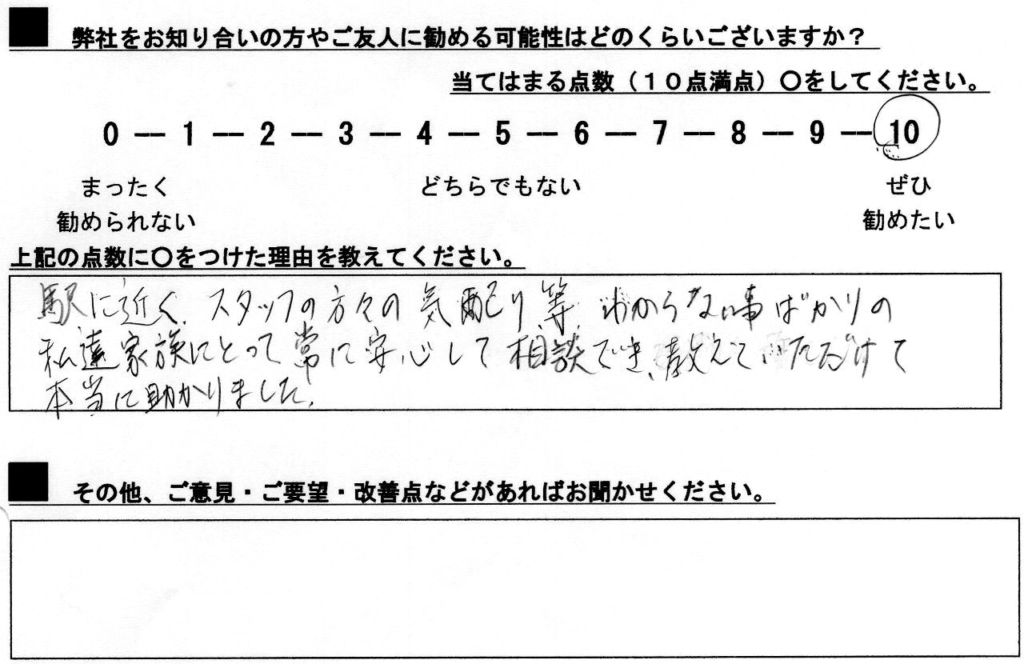 ■ 弊社をお知り合いの方やご友人に勧める可能性はどのくらいございますか？
当てはまる点数（１０点満点）〇をしてください。
0 ― 1 ― 2 ― 3 ― 4 ― 5 ― 6 ― 7 ― 8 ― 9 ― 10
まったく どちらでもない ぜひ
勧められない 勧めたい
上記の点数に〇をつけた理由を教えてください。
駅に近く、スタッフの方々の気配り等、わからない事ばかりの
私達家族にとって常に安心して相談でき、教えていただけて
本当に助かりました。
■ その他、ご意見・ご要望・改善点などがあればお聞かせください。